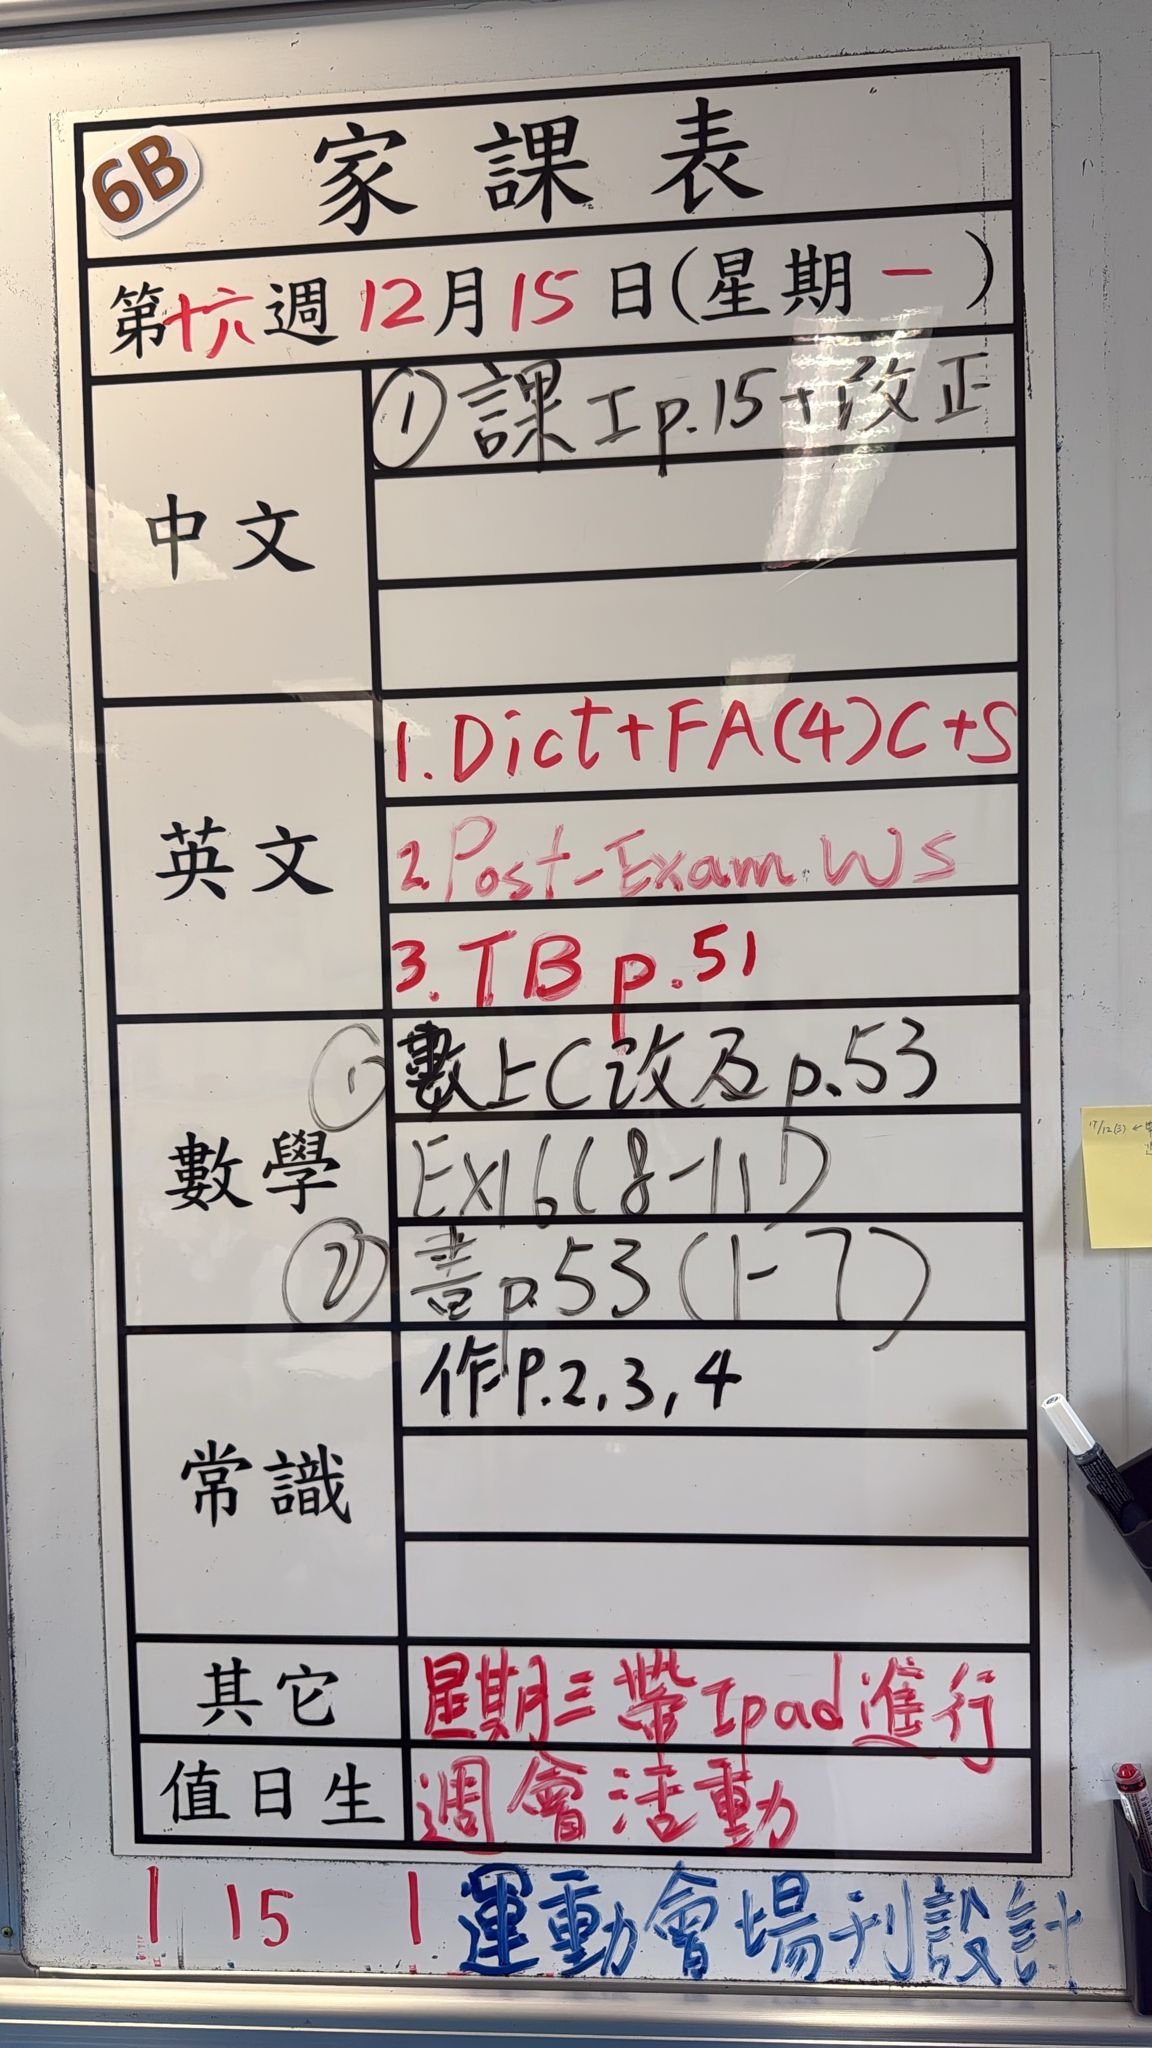 6B 家課表
第十六週 12月15日(星期一)
中文
① 課工p.15+改正
英文
1. Dict+FA(4)C+S
2. Post-Exam WS
3. TB p.51
數學
① 數上C改及p.53
Ex16(8-11)
② 書p.53(1-7)
常識
作P.2,3,4
其它
星期三帶Ipad進行
值日生
週會活動
1 15 1 運動會場刊設計
17/12(三)